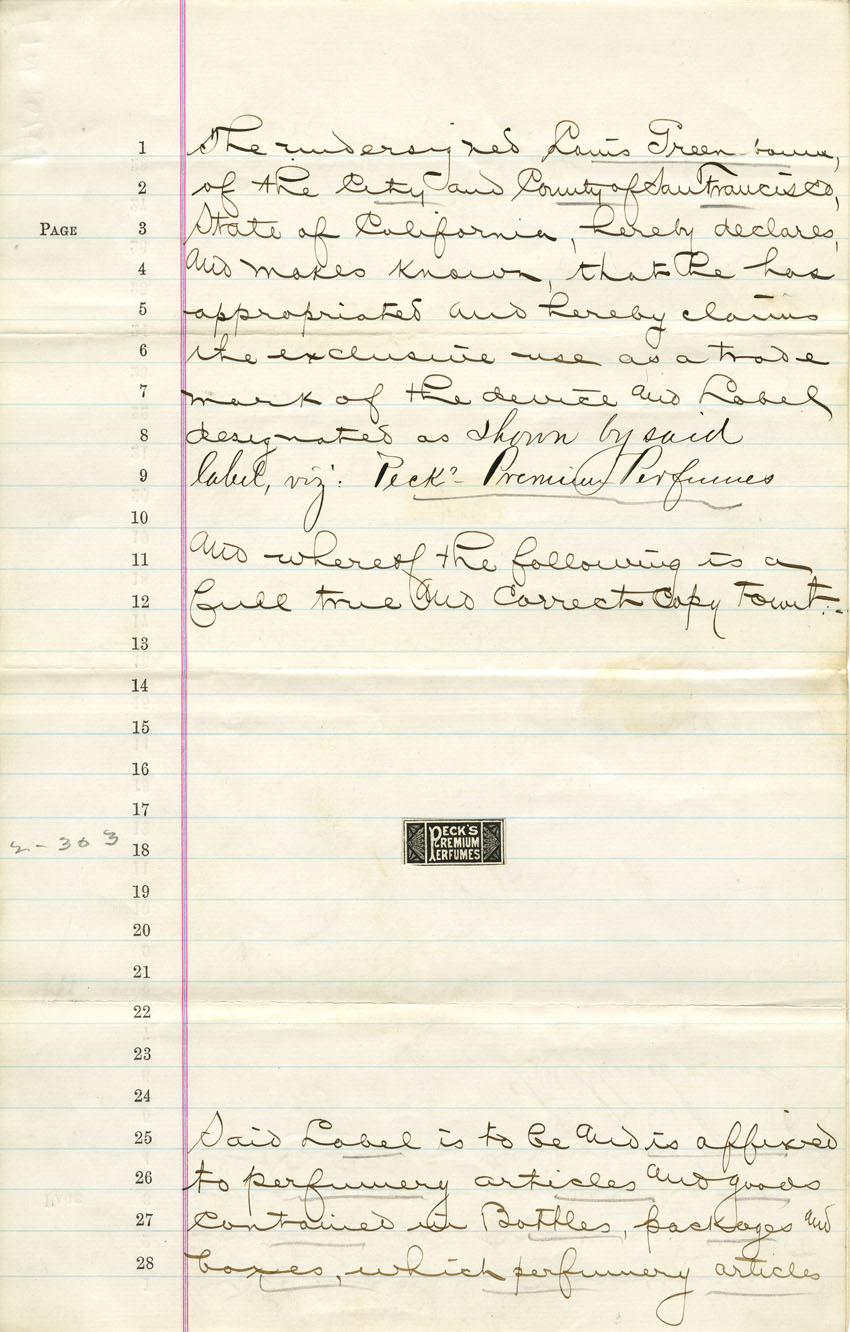 1 The undersigned Louis Greenbaum,
2 of the City and County of San Francisco,
PAGE 3 State of California, hereby declares,
4 and makes known, that he has
5 appropriated and hereby claims
6 the exclusive use as a trade
7 mark of the device and Label
8 designated as shown by said
9 label, viz: Peck's Premium Perfumes
10
11 And whereof the following is a
12 full true and correct copy towit:-
13
14
15
16
17
PECK'S
PREMIUM
PERFUMES
2-303 18
19
20
21
22
23
24
25 Said Label is to be and is affixed
26 to perfumery articles and goods
27 contained in Bottles, packages and
28 boxes, which perfumery articles